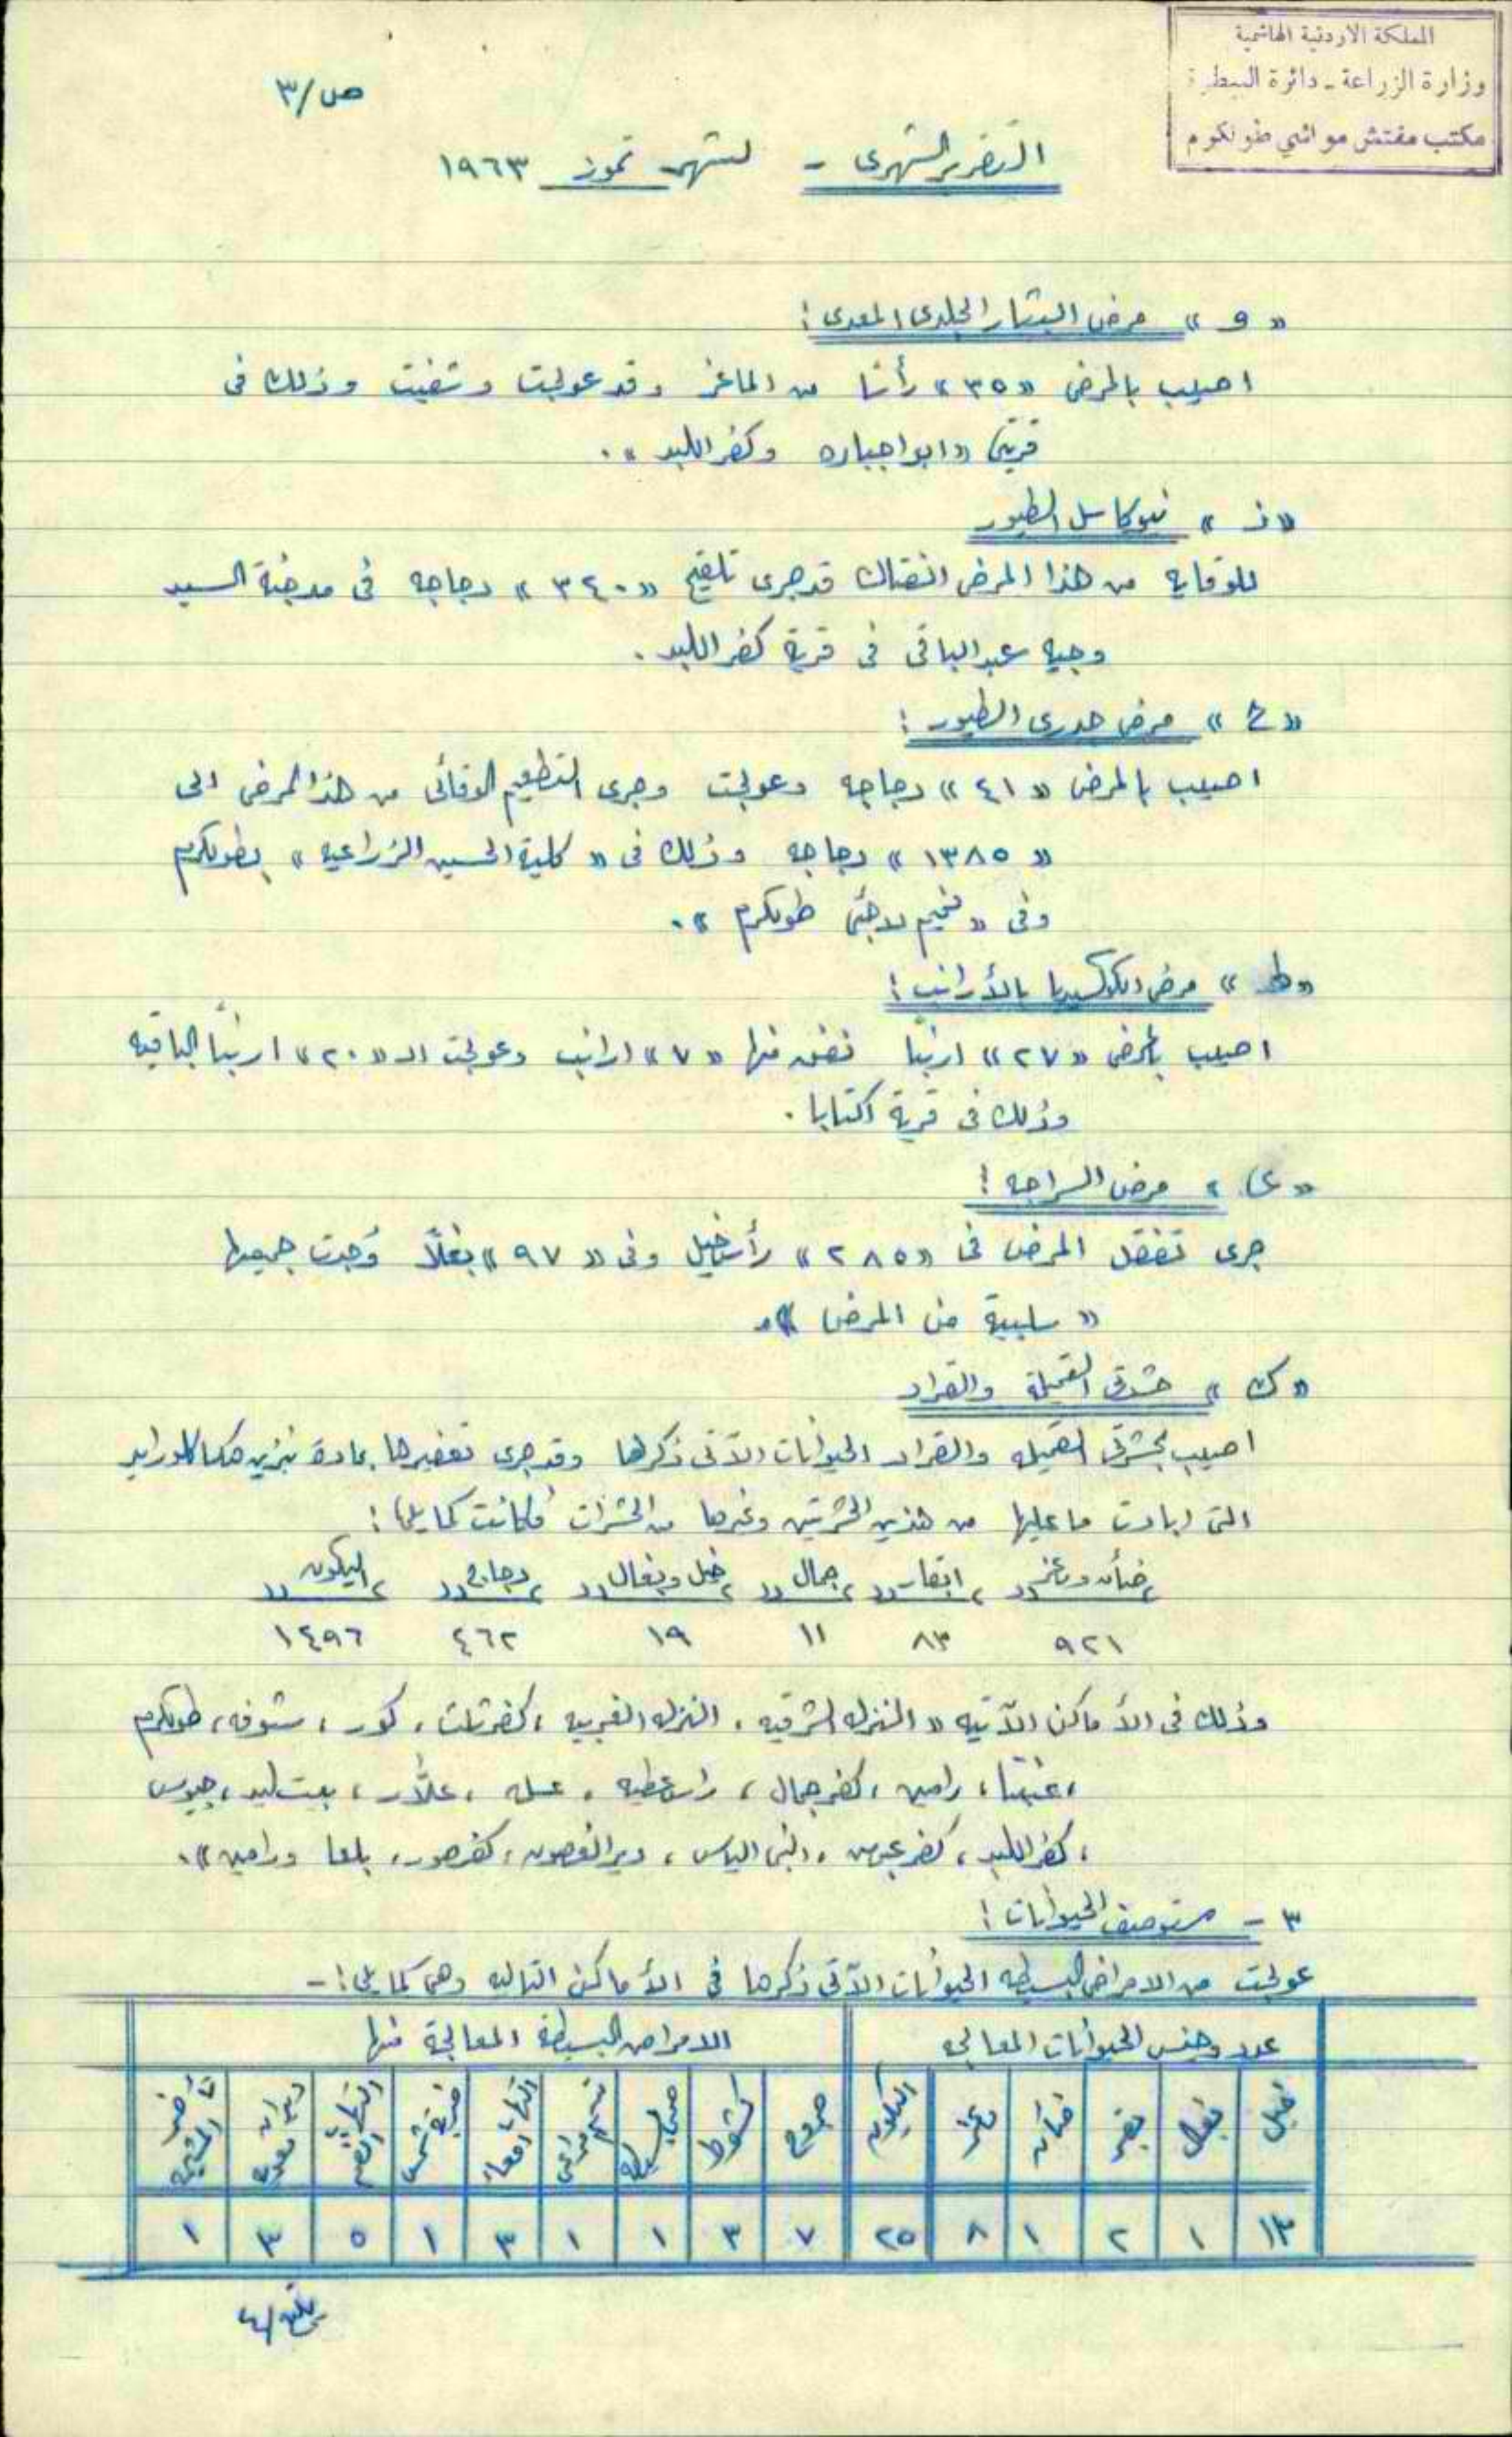 المملكة الاردنية الهاشمية
وزارة الزراعة - دائرة البيطرة
مكتب مفتش مواشي طولكرم
ص/٣
التقرير الشهري - لشهر تموز ١٩٦٣
«و» مرض البثار الجلدي المعدي :
اصيب بالمرض «٣٥» رأسًا من الماعز وقد عولجت وشفيت وذلك في
قريتي «ابو اجباره وكفر اللبد».
«ز» نيوكاسل الطيور
للوقايه من هذا المرض الفتاك قد جرى تلقيح «٣٤٠» دجاجه في مدجنة السيد
وجيه عبد الباقي في قرية كفر اللبد.
«ح» مرض جدري الطيور :
اصيب بالمرض «٤١» دجاجه وعولجت وجرى التطعيم الوقائي من هذا المرض الى
«١٣٨٥» دجاجه وذلك في «كلية الحسين الزراعيه» بطولكرم
وفي «مخيم لاجئي طولكرم».
«ط» مرض الكوكسيديا بالأرانب :
اصيب بالمرض «٢٧» ارنبًا نفق منها «٧» ارانب وعولجت الـ «٢٠» ارنبًا الباقيه
وذلك في قرية اكتابا.
«ي» مرض السراجه :
جرى تفقد المرض في «٢٨٥» رأس خيل وفي «٩٧» بغلًا وُجدت جميعها
«سلبية من المرض».
«ك» حشرتي القميلة والقراد
اصيب بحشرتي القميله والقراد الحيوانات الآتي ذكرها وقد جرى تعفيرها بمادة بنزين هكساكلورايد
التي ابادت ما عليها من هذين الحشرتين وغيرها من الحشرات فكانت كما يلي :
ضأن وماعز ، ابقار ، جمال ، خيل وبغال ، دجاج ، اليكون
٩٢١ ٨٣ ١١ ١٩ ٤٦٢ ١٤٩٦
وذلك في الأماكن الآتيه «النزله الشرقيه ، النزله الغربيه ، كفر ثلث ، كور ، شوفه ، طولكرم
، عنبتا ، رامين ، كفر جمال ، راس عطيه ، عسله ، علّار ، بيت ليد ، جيوس
، كفر اللبد ، كفر عبوش ، النبي الياس ، دير الغصون ، كفر صور ، بلعا ورامين».
٣ - مستوصف الحيوانات :
عولجت من الامراض البسيطه الحيوانات الآتي ذكرها في الأماكن التاليه وهي كما يلي :-
عدد وجنس الحيوانات المعالجه الامراض البسيطة المعالجة منها
خيل بغال بقر ضأن ماعز اليكون جروح كشوط التهاب امعاء ضربة شمس ديدان معويه
١٣ ١ ٢ ١ ٨ ٢٥ ٧ ٣ ١ ١ ٣ ١ ٥ ٣ ١
يتبع/٤